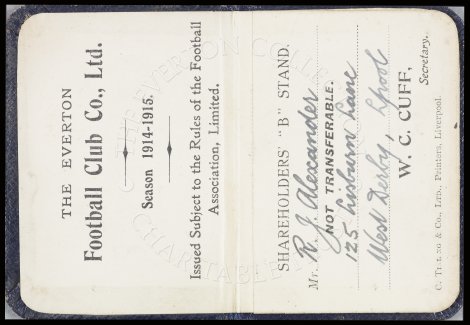 THE EVERTON
Football Club Co., Ltd.
Season 1914-1915.
Issued Subject to the Rules of the Football
Association, Limited.
SHAREHOLDERS' "B" STAND.
Mr. R. J. Alexander
NOT TRANSFERABLE.
125 Lisburn Lane
West Derby, Lpool
W. C. CUFF,
Secretary.
C. Tinling & Co., Ltd., Printers, Liverpool.
EVERTON COLLECTION
CHARITABLE